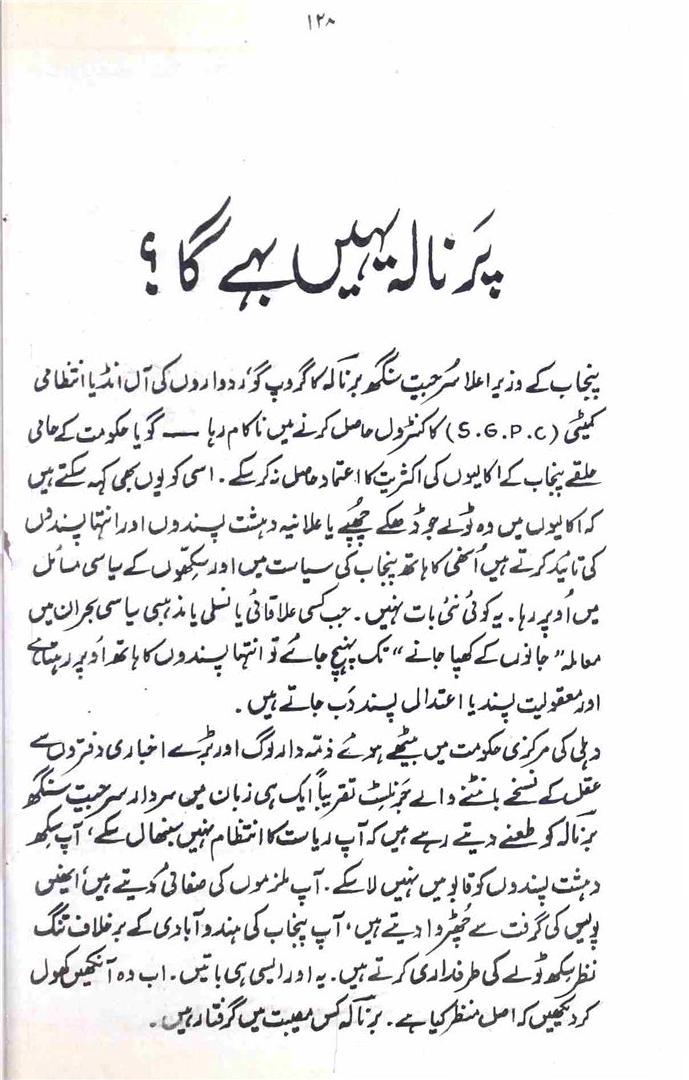 ۱۲۸
پَرنالہ یہیں بہے گا؟
پنجاب کے وزیر اعلا سرجیت سنگھ برنالہ کا گروپ گوُردواروں کی آل انڈیا انتظامی
کمیٹی (S.G.P.C) کا کنٹرول حاصل کرنے میں ناکام رہا — گویا حکومت کے حامی
حلقے پنجاب کے اکالیوں کی اکثریت کا اعتماد حاصل نہ کر سکے۔ اسی کو یوں بھی کہہ سکتے ہیں
کہ اکالیوں میں وہ ٹولے جو ڈھکے چھُپے یا علانیہ دہشت پسندوں اور انتہا پسندوں
کی تائید کرتے ہیں اُنھی کا ہاتھ پنجاب کی سیاست میں اور سکھّوں کے سیاسی مسائل
میں اُوپر رہا۔ یہ کوئی نئی بات نہیں۔ جب کسی علاقائی یا نسلی یا مذہبی سیاسی بحران میں
معاملہ "جانوں کے کھپا جانے" تک پہنچ جائے تو انتہا پسندوں کا ہاتھ اُوپر رہتا ہے
اور معقولیت پسند یا اعتدالی پسند دَب جاتے ہیں۔
دہلی کی مرکزی حکومت میں بیٹھے ہوئے ذمّہ دار لوگ اور بڑے اخباری دفتروں سے
عقل کے نسخے بانٹنے والے جرنلسٹ تقریباً ایک ہی زبان میں سردار سرجیت سنگھ
برنالہ کو طعنے دیتے رہے ہیں کہ آپ ریاست کا انتظام نہیں سنبھال سکے، آپ سکھ
دہشت پسندوں کو قابو میں نہیں لا سکے۔ آپ ملزموں کی صفائی دیتے ہیں، انھیں
پولیس کی گرفت سے چھُڑوا دیتے ہیں، آپ پنجاب کی ہندو آبادی کے برخلاف تنگ
نظر سکھ ٹولے کی طرفداری کرتے ہیں۔ یہ اور ایسی ہی باتیں۔ اب وہ آنکھیں کھول
کر دیکھیں کہ اصل منظر کیا ہے۔ برنالہ کس مصیبت میں گرفتار ہیں۔